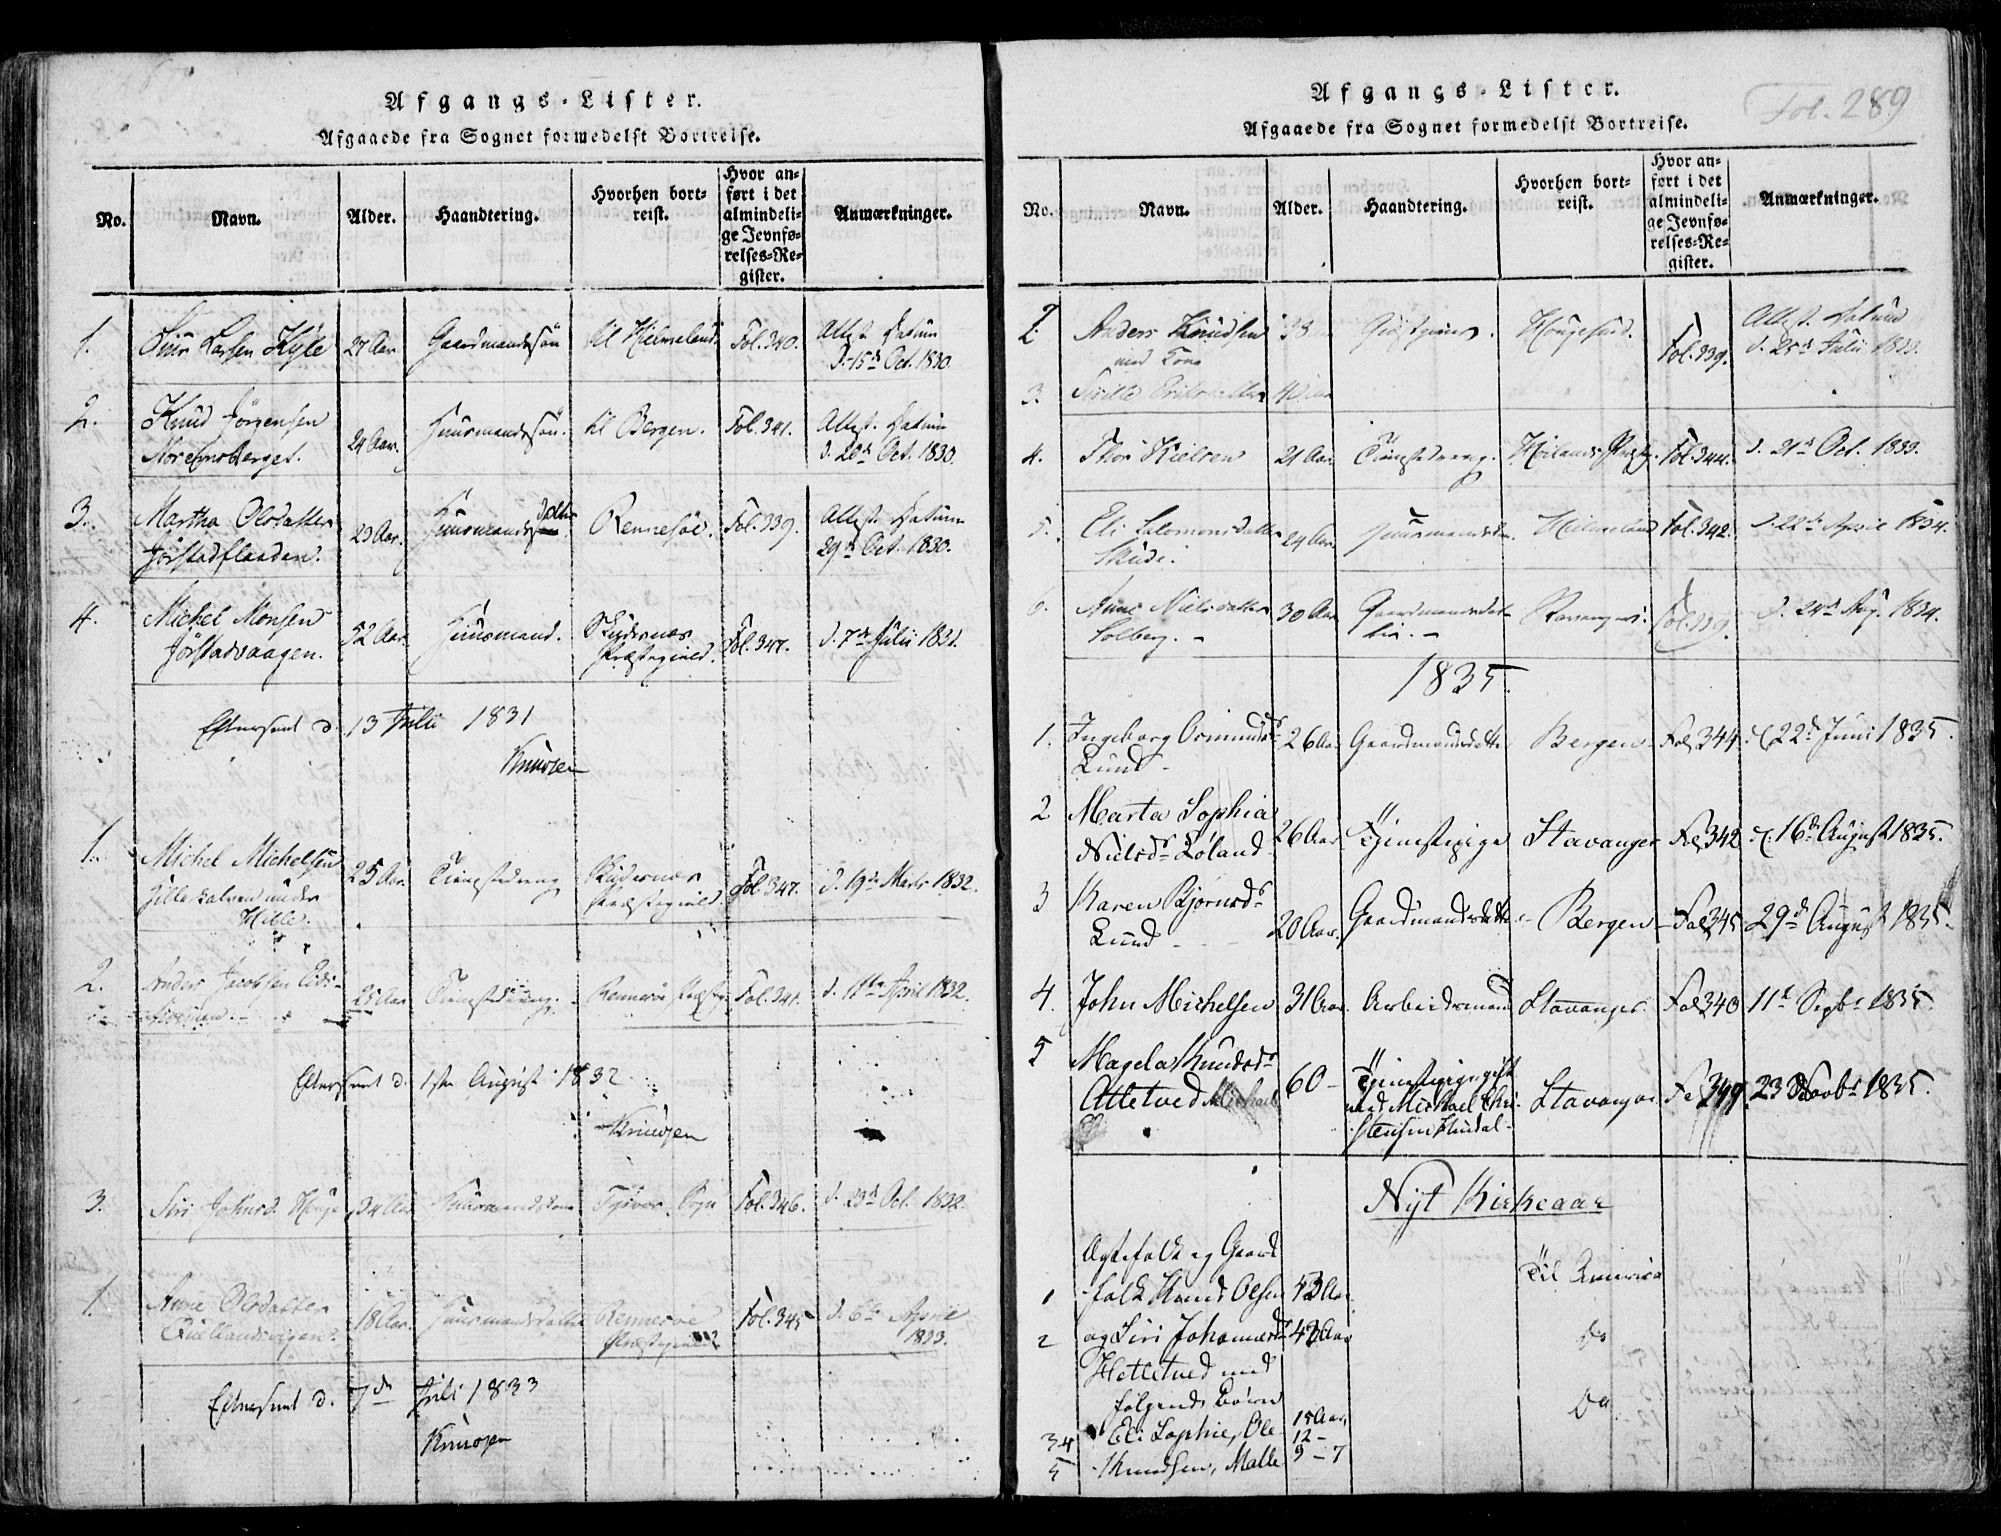 Afgangs-Lister.
Afgaaede fra Sognet formedelst Bortreise.
No. Navn. Alder. Haandtering. Hvorhen bortreist. Hvor anført i det almindelige Jevnførelses-Register. Anmærkninger.
1. Siur Larsen Kyle 27 Aar Gaardmandssøn til Hielmeland Fol. 340. Attest. Datum
d. 15de Oct. 1830.
2. Knud Jörgensen 24 Aar. Huusmandssøn. til Bergen. Fol. 341. Attest. Datum
d. 20de Oct. 1830.
3. Martha Olsdatter 23 Aar. Huusmands Rennesöe. Fol. 339. Attest. Datum
Jörstadflaaden. 29de Oct. 1830.
4. Michel Monsen 52 Aar. Huusmand. Skudesnæs Fol. 347. d. 7de Julii 1831.
Jörstadvaagen. Præstegield.
Efterseet d. 13 Julii 1831
Knudsen
1. Michel Michelsen 25 Aar. Tienestedreng Skudesnæs Fol. 347. d. 19de Marts 1832.
under Præstegield
Hille.
2. Anders Jacobsen 25 Aar Tienestedreng. Rennesöe Præsteg. Fol. 341. d. 11te April 1832.
Efterseet d. 1ste August 1832
Knudsen
3. Siri Johnsd. Houge 34 Aar Huusmandskone Sogn Fol. 346. d. 23de Oct. 1832.
1. Anne Olsdatter 18 Aar. Huusmandsdatter Rennesöe Fol. 345 d. 6te April
Præstegield 1833.
Efterseet d. 7de Juli 1833
Knudsen
Afgangs-Lister.
Fol. 289
Afgaaede fra Sognet formedelst Bortreise.
No. Navn. Alder. Haandtering. Hvorhen bortreist. Hvor anført i det almindelige Jevnførelses-Register. Anmærkninger.
2. Anders Knudsen 38 Giæstgiver. Hougesund. Fol. 339. Attest. Datum
med Kone d. 25de Julii 1833.
3. 40 Aar
4. Thor Nielsen 21 Aar. Tienestedreng. Höilands Præsteg. Fol. 344. d. 21de Oct. 1833.
5. Eli Salomonsdatter 24 Aar. Huusmandsd. Hielmeland Fol. 342. d. 22de April 1834.
6. Anne Nielsdatter 30 Aar Gaardmandsdat- Stavanger. Fol. 339. d. 24de Aug. 1834.
Solberg. ter.
1835.
1. Ingeborg Osmundsdr 26 Aar Gaardmandsdatter Bergen Fol 344. d. 22de Juni 1835.
Lund
2 Marta Sophia 26 Aar Tjenestepige Stavanger Fol 342 d. 16de August 1835.
Nielsdr Löland
3 Karen Bjørnsdr 20 Aar. Gaardmandsdatter Bergen Fol 345 29de August 1835.
Lund
4. John Michelsen 31 Aar. Arbeidsmand Stavanger. Fol 340 11te Sepbr 1835.
5 Magela Knudsdr 60 Tjenestepige gift Stavanger Fol 23 Novbr 1835.
Attetved med Michael Chri-
stensen
Nyt Kirkeaar
Ægtefolk og Gaard-
1 folk Knud Olsen 43 Aar Til America
2 og Siri Johannesdr 42 Aar Do
Hettetved med
følgende Börn Do
3 4 Eli Sophie, Ole 15 Aar, 12
5 Knudsen, Malle 9 - 7